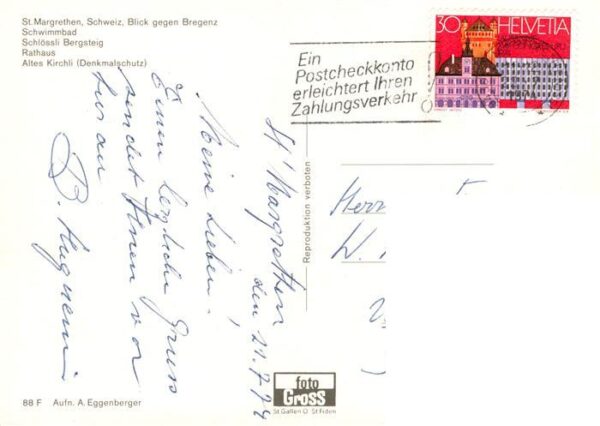 St. Margrethen, Schweiz, Blick gegen Bregenz
Schwimmbad
Schlössli Bergsteig
Rathaus
Altes Kirchli (Denkmalschutz)
Ein
Postcheckkonto
erleichtert Ihren
Zahlungsverkehr
30 HELVETIA
St' Margrethen
den 21.7.74
Meine Lieben!
Einen herzliche Gruss
sendet Ihnen von
hier
Herrn
W.
Reproduktion verboten
foto
Gross
St. Gallen O. St Fiden
88 F Aufn. A. Eggenberger